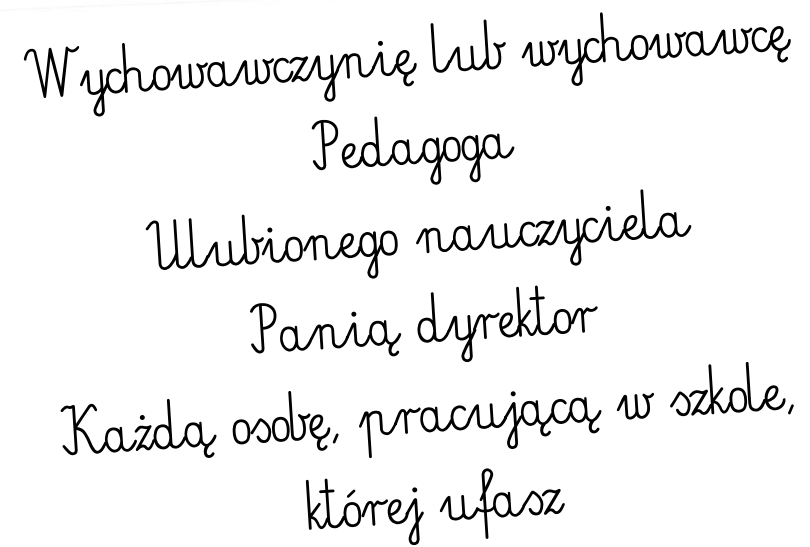 Wychowawczynię lub wychowawcę
Pedagoga
Ulubionego nauczyciela
Panią dyrektor
Każdą osobę, pracującą w szkole,
której ufasz